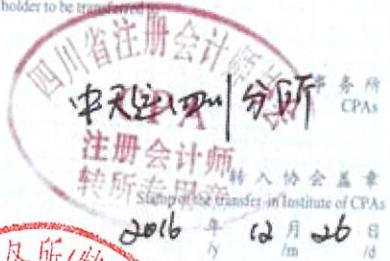 holder to be transferred to
四川省注册会计师协会
中天运四川分所 事务所
CPA
CPAs
注册会计师
转所专用章
转入协会盖章
Stamp of the transfer-in Institute of CPAs
2016 年 12 月 26 日
/y /m /d